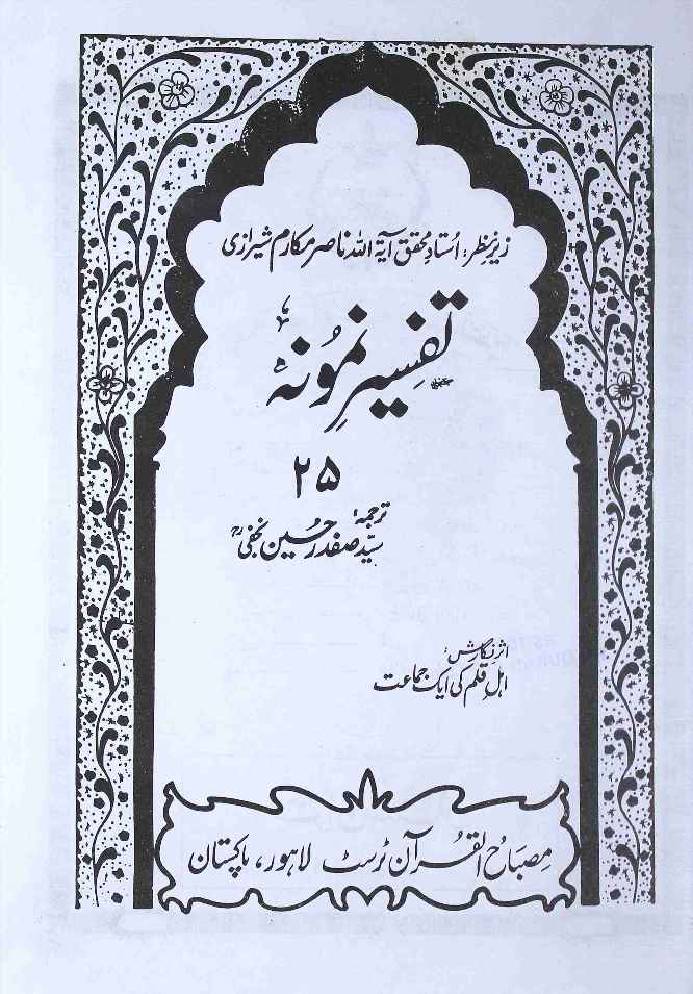 زیرِ نظر: اُستادِ محقق آیۃ اللہ ناصر مکارم شیرازی
تفسیرِ نمونہ
۲۵
ترجمہ:
سیّد صفدر حسین نجفیؒ
اثرِ نگارش:
اہلِ قلم کی ایک جماعت
مِصبَاحُ القُرآن ٹرسٹ لاہور، پاکستان